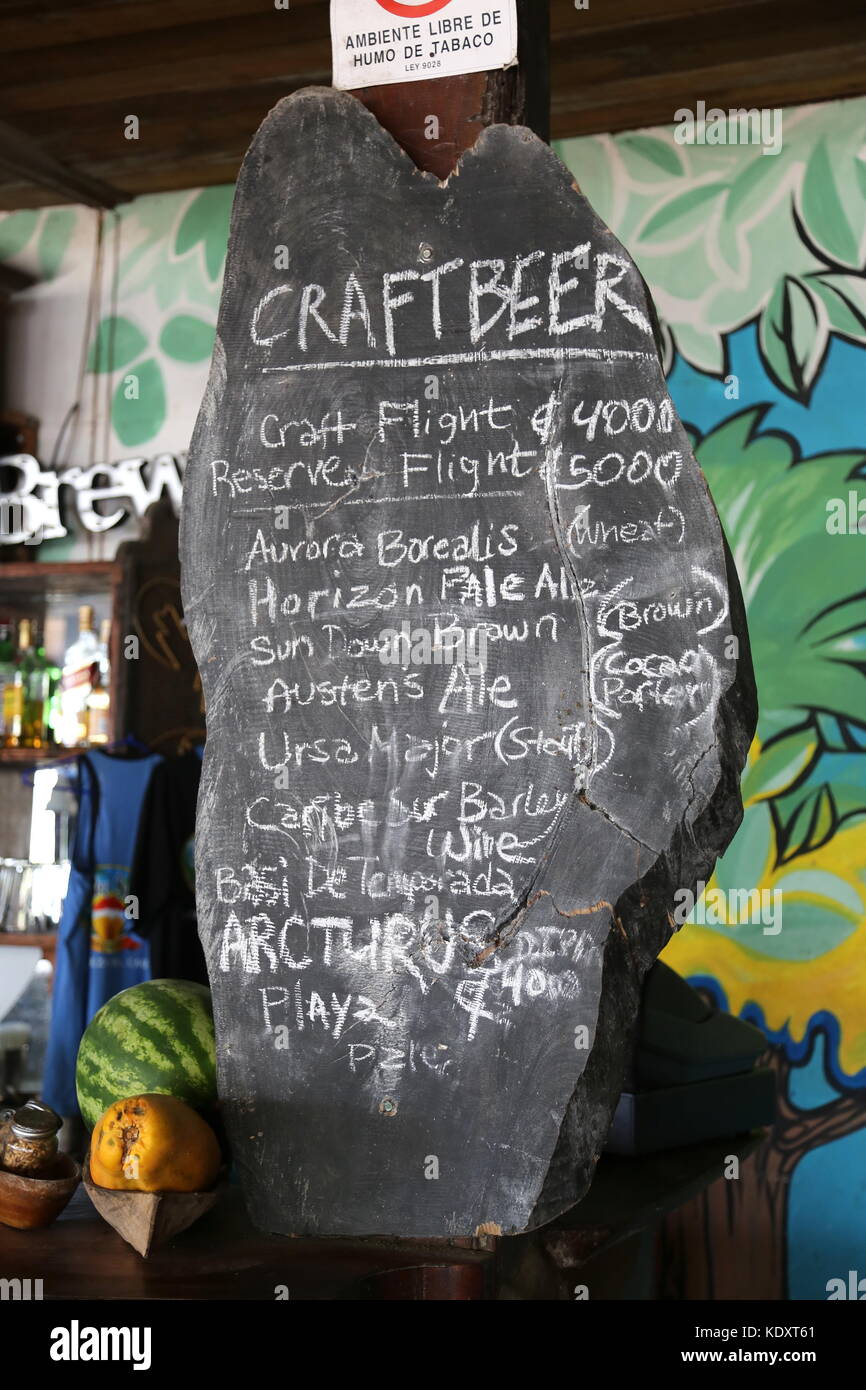 AMBIENTE LIBRE DE
HUMO DE TABACO
LEY 9028
CRAFT BEER
Craft Flight ₡ 4000
Reserve Flight ₡5000
Aurora Borealis (Wheat)
Horizon Pale Ale
Sun Down Brown (Brown)
Austen's Ale (Cacao Porter)
Ursa Major (Stout)
Caribe Sur Barley
Wine
De Temporada
ARCTURUS
Playa ₡ 4000
Brew
alamy
Image ID: KDXT61
www.alamy.com